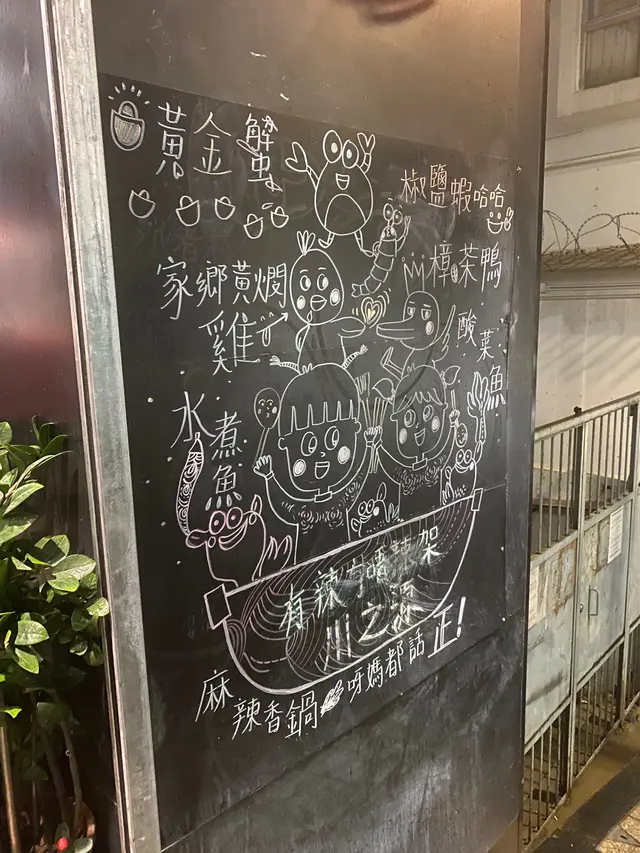 黃金蟹
椒鹽蝦哈哈
家鄉黃燜雞
樟茶鴨
酸菜魚
水煮魚
有辣有唔辣架
川之
麻辣香鍋 呀媽都話正!